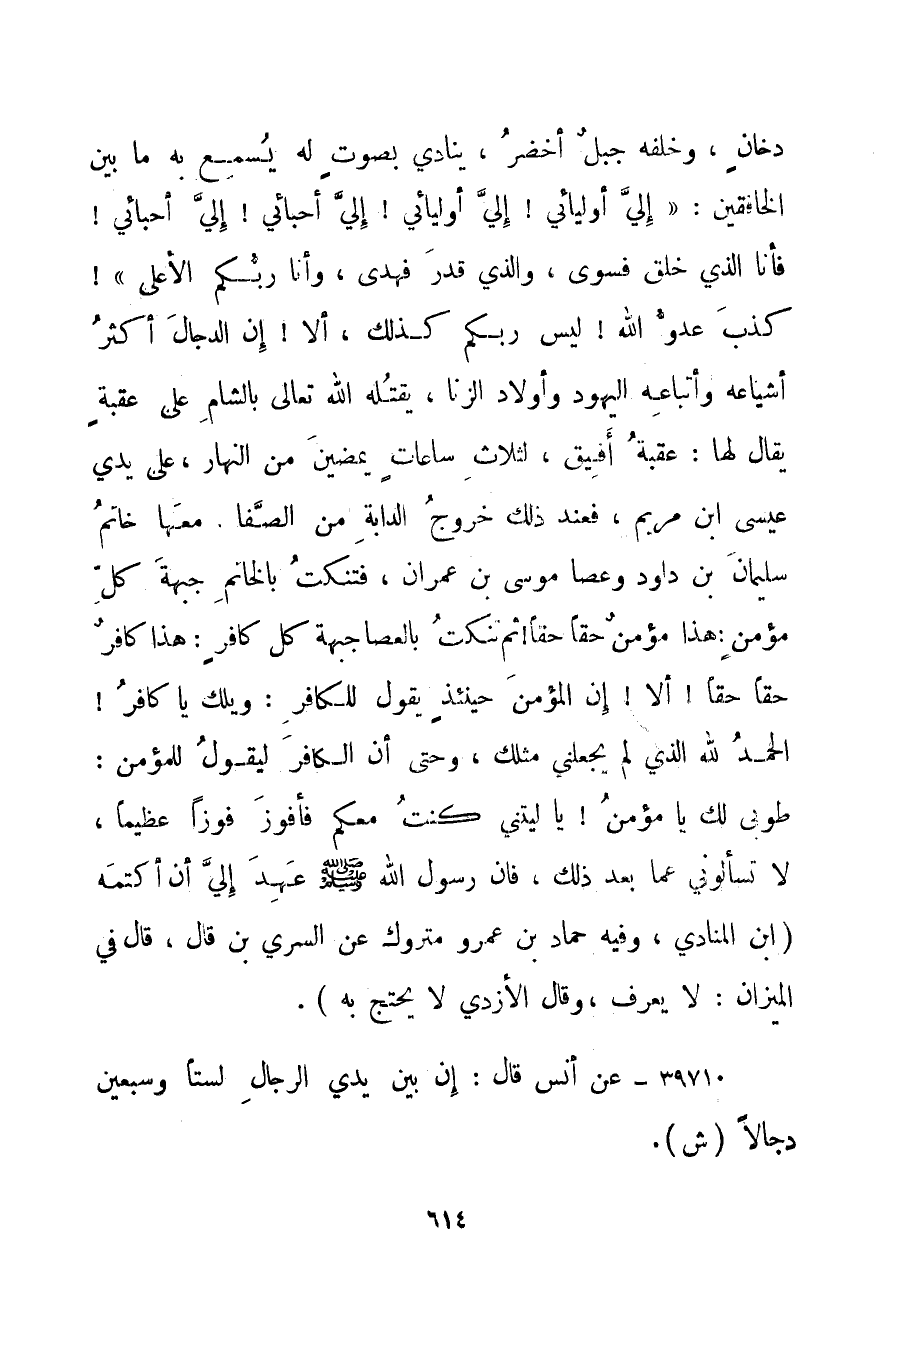 دخانٍ ، وخلفه جبلٌ أخضرُ ، ينادي بصوتٍ له يُسمِع به ما بين
الخافقين : « إليَّ أوليائي ! إليَّ أوليائي ! إليَّ أحبائي ! إليَّ أحبائي !
فأنا الذي خلق فسوى ، والذي قدرَ فهدى ، وأنا ربُّكم الأعلى » !
كذبَ عدوُّ الله ! ليس ربكم كذلك ، ألا ! إن الدجالَ أكثرُ
أشياعه وأتباعِه اليهود وأولاد الزنا ، يقتُله الله تعالى بالشامِ على عقبةٍ
يقال لها : عقبةُ أَفِيق ، لثلاثِ ساعاتٍ يمضينَ من النهار ، على يدي
عيسى ابن مريم ، فعند ذلك خروجُ الدابةِ من الصَّفا . معَها خاتمُ
سليمانَ بن داود وعصا موسى بن عمران ، فتنكتُ بالخاتمِ جبهةَ كلِّ
مؤمنٍ : هذا مؤمنٌ حقاً حقاً ! ثم تنكتُ بالعصا جبهة كل كافرٍ : هذا كافرٌ
حقاً حقاً ! ألا ! إن المؤمنَ حينئذٍ يقول للكافرِ : ويلك يا كافرُ !
الحمدُ لله الذي لم يجعلني مثلك ، وحتى أن الكافرَ ليقولُ للمؤمن :
طوبى لك يا مؤمنُ ! يا ليتني كنتُ معكم فأفوزَ فوزاً عظيماً ،
لا تسألوني عما بعد ذلك ، فان رسول الله ﷺ عَهِدَ إليَّ أن أكتمَه
( ابن المنادي ، وفيه حماد بن عمرو متروك عن السري بن قال ، قال في
الميزان : لا يعرف ، وقال الأزدي لا يحتج به ) .
٣٩٧١٠ - عن أنس قال : إن بين يدي الرجالِ لستاً وسبعين
دجالاً ( ش ) .
٦١٤